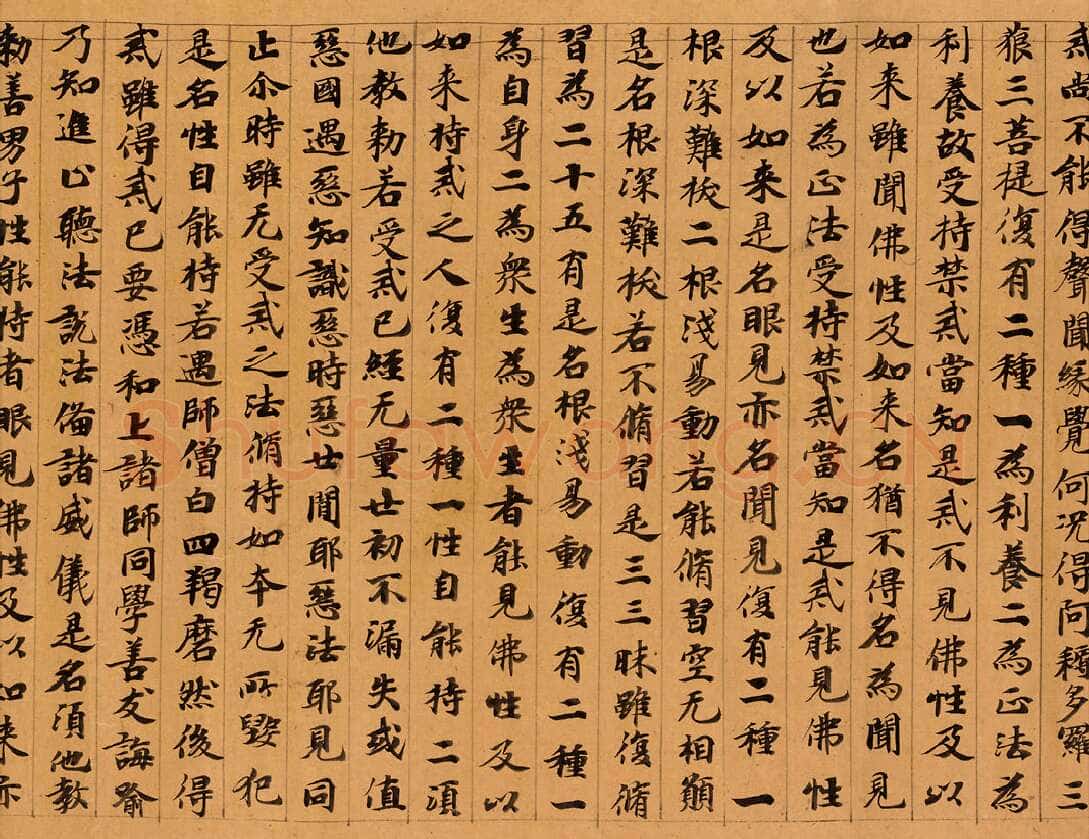 戒尚不能得聲聞緣覺何况得阿耨多羅三
藐三菩提復有二種一為利養二為正法為
利養故受持禁戒當知是戒不見佛性及以
如来雖聞佛性及如来名猶不得名為聞見
也若為正法受持禁戒當知是戒能見佛性
及以如来是名眼見亦名聞見復有二種一
根深難拔二根淺易動若能脩習空无相願
是名根深難拔若不脩習是三三昧雖復脩
習為二十五有是名根淺易動復有二種一
為自身二為衆生為衆生者能見佛性及以
如来持戒之人復有二種一性自能持二須
他教勑若受戒已經无量世初不漏失或值
惡國遇惡知識惡時惡世聞耶惡法耶見同
止尒時雖无受戒之法脩持如本无所毀犯
是名性自能持若遇師僧白四羯磨然後得
戒雖得戒已要憑和上諸師同學善友誨喻
乃知進止聽法說法俻諸威儀是名須他教
勑善男子性能持者眼見佛性及以如来亦
Shufawang.CN